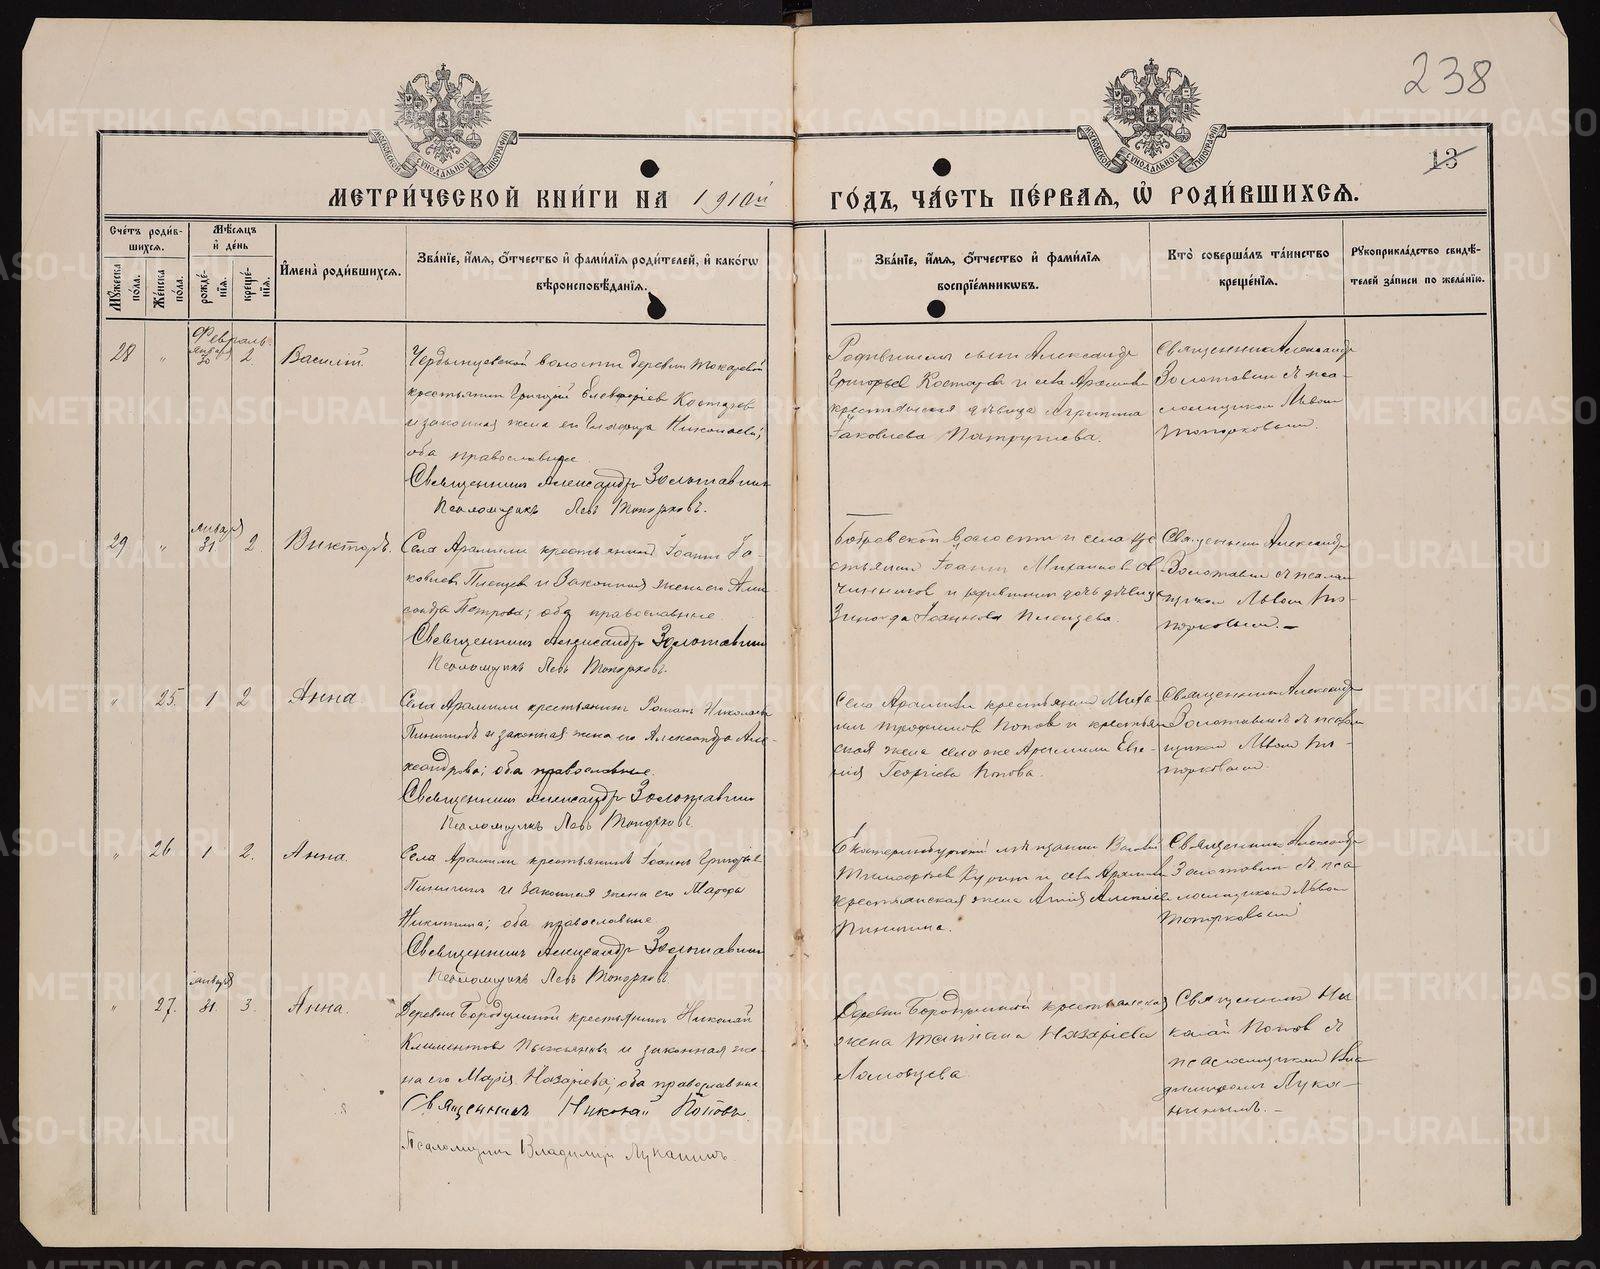 238
13
МОСКОВСКОЙ СѴНОДАЛЬНОЙ ТИПОГРАФІИ
МОСКОВСКОЙ СѴНОДАЛЬНОЙ ТИПОГРАФІИ
МЕТРИ́ЧЕСКОЙ КНИ́ГИ НА 1910й ГО́ДЪ, ЧА́СТЬ ПЕ́РВАѦ, Ѡ҆ РОДИ́ВШИХСѦ.
Сче́тъ роди́в-
шихсѧ.
Мꙋ́жеска по́ла.
Же́нска по́ла.
Мѣ́сѧцъ
и҆ де́нь
рожде́-
нїѧ.
креще́-
нїѧ.
И҆мена̀ роди́вшихсѧ.
Зва́нїе, и҆́мѧ, ѻ҆́тчество и҆ фами́лїѧ роди́телей, и҆ како́гѡ
вѣроисповѣ́данїѧ.
Зва́нїе, и҆́мѧ, ѻ҆́тчество и҆ фами́лїѧ
воспрїе́мникѡвъ.
Кто̀ соверша́лъ та́инство
креще́нїѧ.
Рꙋкоприкла́дство свидѣ́-
телей за́писи по жела́нїю.
Февраль
28 " Января 30 2 Василій.
Чердынцевской волости деревни Токаревой
крестьянин Григорій Елевферіев Костарев
и законная жена его Глафира Николаева;
оба православные.
Священникъ Александръ Золотавин
Псаломщикъ Левъ Топорковъ.
Родившаго сын Александр
Григорьев Костарев и села Арамили
крестьянская девица Агрипина
Іаковлева Патрушева.
Священник Александр
Золотавин с пса-
ломщиком Львом
Топорковым.
29 " Января 31 2 Викторъ.
Села Арамили крестьянин Іоанн Іа-
ковлев Плещев и Законная жена его Але-
ксандра Петрова; оба православные
Священникъ Александръ Золотавин
Псаломщикъ Левъ Топорковъ.
Бобровской волости и села кре
стьянин Іоанн Михаилов Ов
чинников и родившаго дочь девица
Зинаида Іоаннова Плещева.
Священник Александр
Золотавин с псалом
щиком Львом То-
порковым. –
" 25 1 2 Анна
Села Арамили крестьянинъ Роман Николаев
и законная жена его Александра Але-
ксандрова; оба православные.
Священникъ Александръ Золотавин
Псаломщикъ Левъ Топорковъ.
Села Арамили крестьянин Миха
ил Трофимов Попов и крестьян
ская жена села же Арамили Евге-
нія Георгіева Попова.
Священник Александр
Золотавин с псалом
щиком Львом То-
порковым
" 26 1 2. Анна.
Села Арамили крестьянинъ Іоаннъ Григорьев
Пинигин и Законная жена его Марфа
Никитина; оба православные.
Священникъ Александръ Золотавин
Псаломщикъ Левъ Топорковъ
Екатеринбургский мещанин
Тимофеев и села Арамили
крестьянская жена Алексіев
Пинигина.
Священник Александр
Золотавин с пса-
ломщиком Львом
Топорковым
" 27. Января 31. 3. Анна.
Деревни Бородулиной крестьянин Николай
Климентов Пьянков и законная же-
на его Марія Назаріева; оба православные
Священникъ Николай Поповъ
Псаломщик Владимир Луканинъ.
Деревни Бородулиной крестьянская
жена Татіана Назаріева
Ломовцева
Священник Ни
колай Попов с
псаломщиком Вла
димиром Лука-
нинымъ. –
METRIKI.GASO-URAL.RU